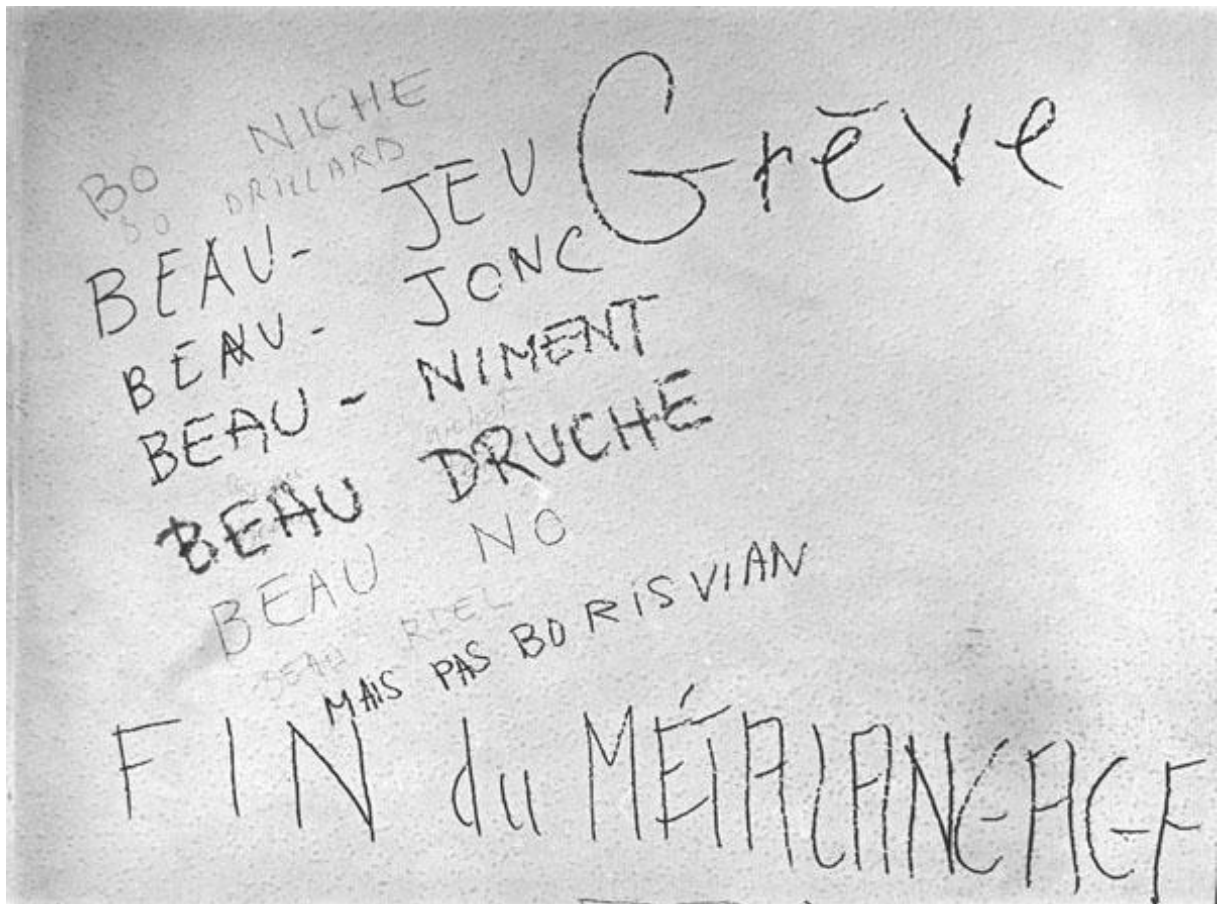 BO NICHE
BO DRILLARD
BEAU- JEU
Grève
BEAU- JONC
BEAU- NIMENT
BEAU DRUCHE
BEAU NO
BEAU RIEL
MAIS PAS BORIS VIAN
FIN du MÉTALANGAGE